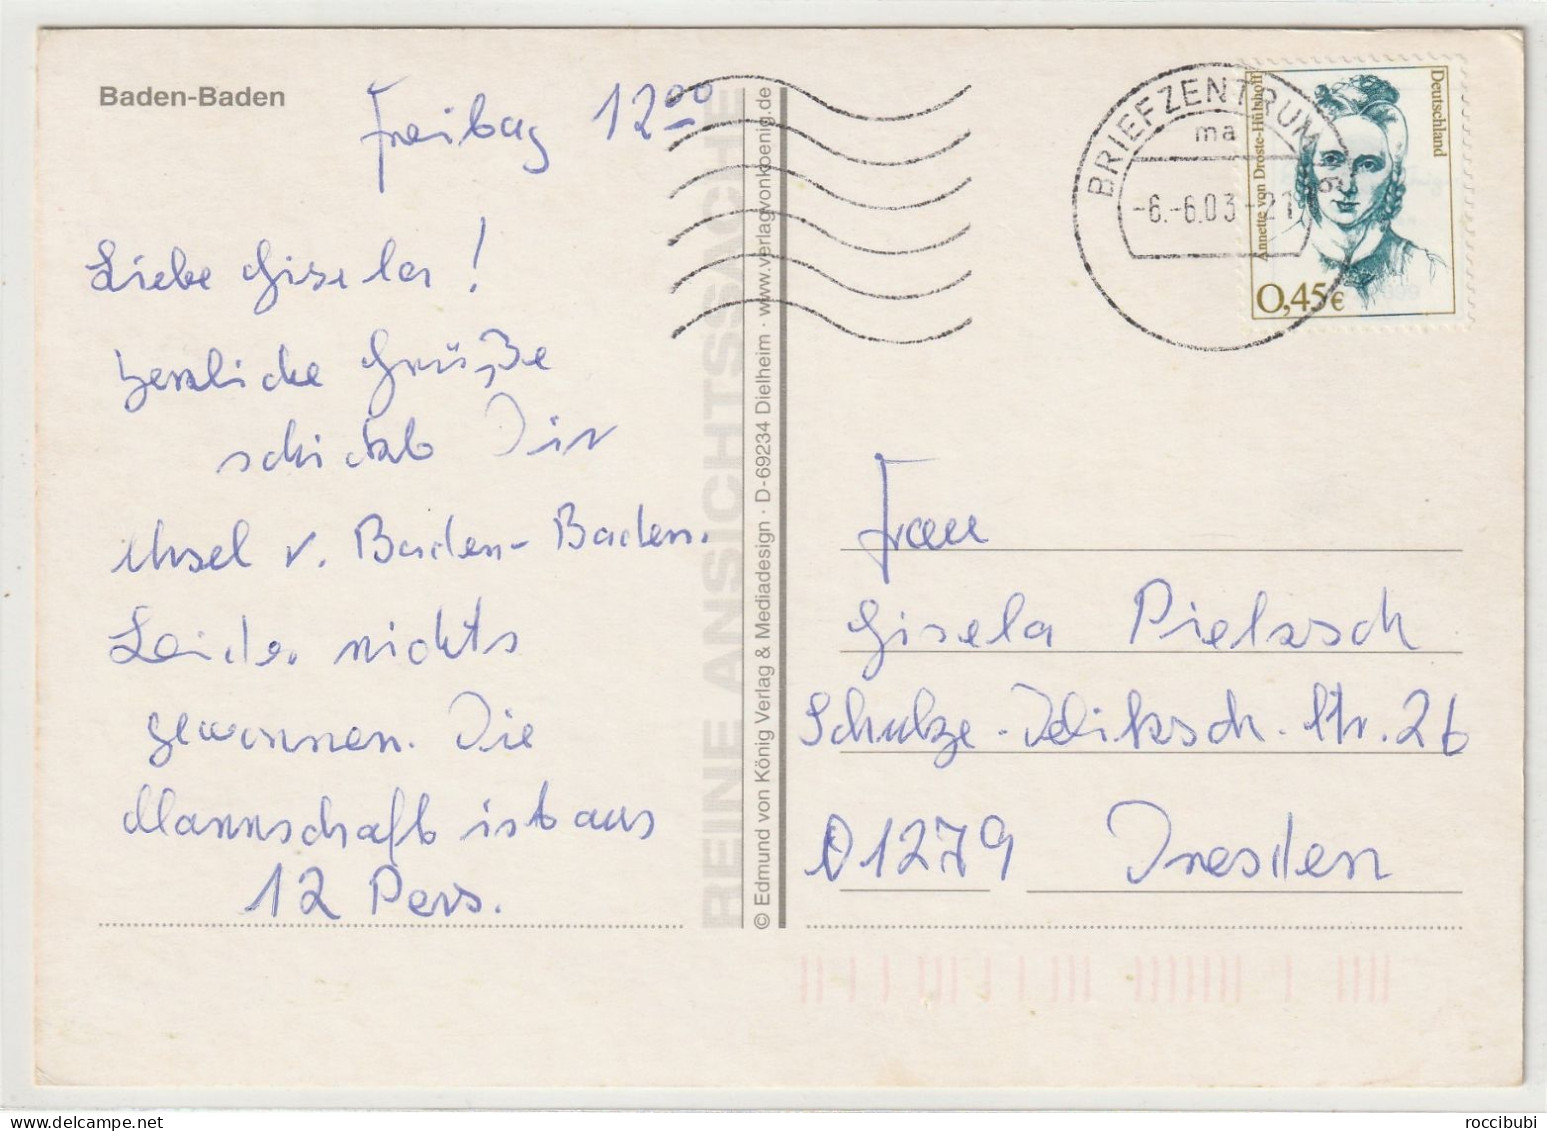 Baden-Baden
Freitag 12⁰⁰
Liebe Gisela!
herzliche Grüße
schickt Dir
Ursel v. Baden-Baden.
Leider nichts
gewonnen. Die
Mannschaft ist aus
12 Pers.
REINE ANSICHTSSACHE
© Edmund von König Verlag & Mediadesign · D-69234 Dielheim · www.verlagvonkoenig.de
BRIEFZENTRUM 76
ma
-6.-6.03-21
Annette von Droste-Hülshoff
Deutschland
0,45€
Frau
Gisela Pielzsch
Schulze-Delitzsch-Str. 26
01279 Dresden
roccibubi